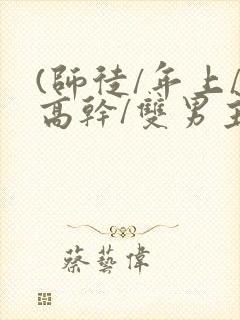 (師徒/年上/
高幹/雙男主
蔡藝偉